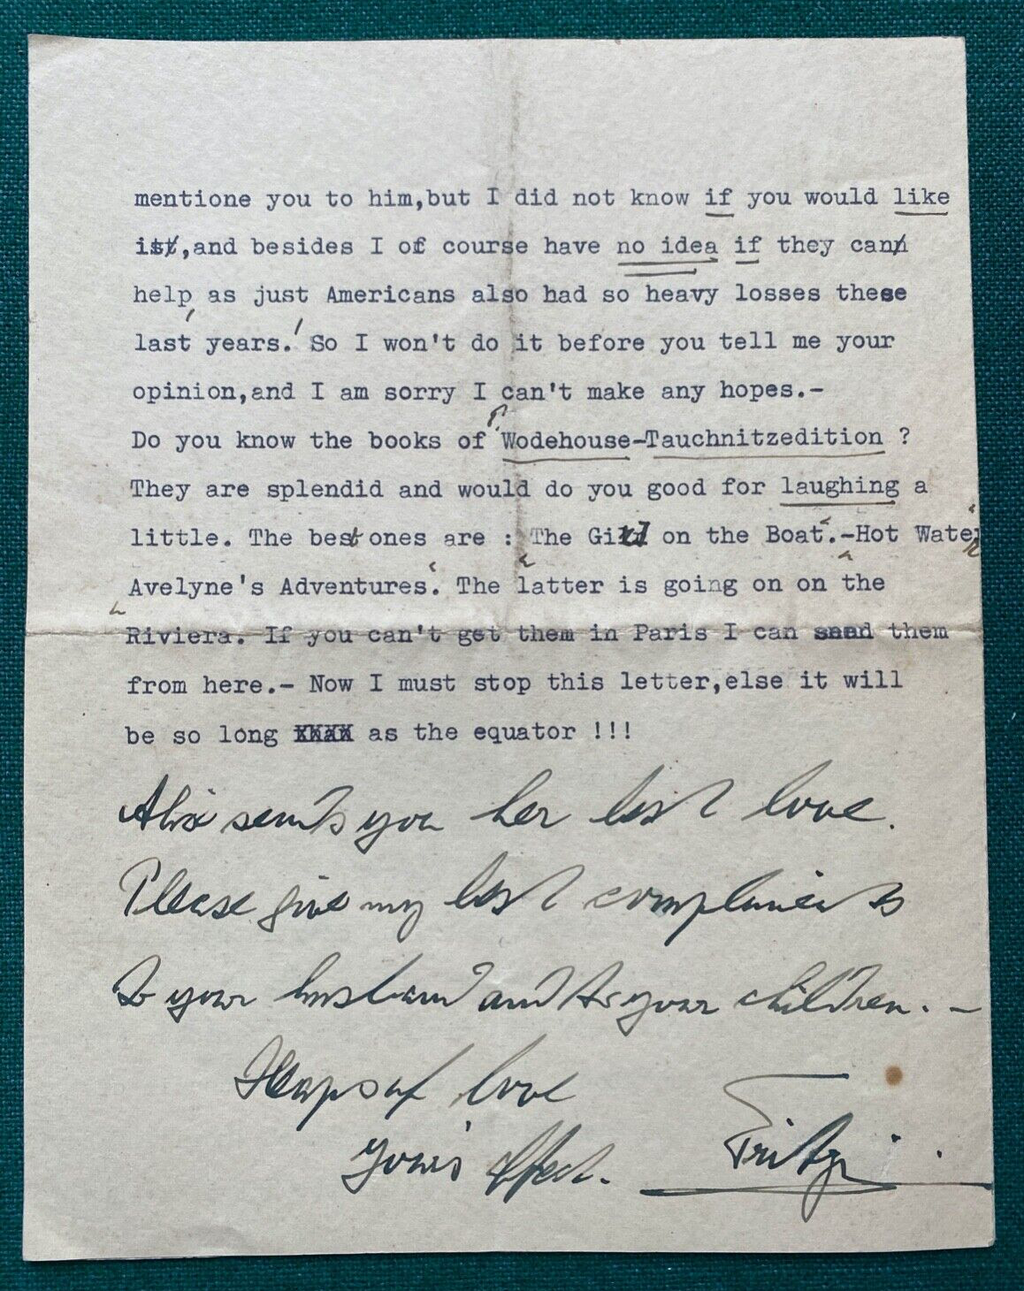 mentione you to him,but I did not know if you would like
it,and besides I of course have no idea if they can
help as just Americans also had so heavy losses these
last years. So I won't do it before you tell me your
opinion,and I am sorry I can't make any hopes.-
Do you know the books of Wodehouse-Tauchnitzedition ?
They are splendid and would do you good for laughing a
little. The best ones are : The Girl on the Boat.-Hot Water
Avelyne's Adventures. The latter is going on on the
Riviera. If you can't get them in Paris I can send them
from here.- Now I must stop this letter,else it will
be so long as the equator !!!
Alix sends you her best love.
Please give my best compliments
to your husband and to your children. -
Heaps of love
yours affect. Fritzi.